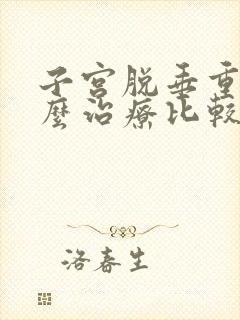 子宫脱垂重
麽治療比較
洛春生